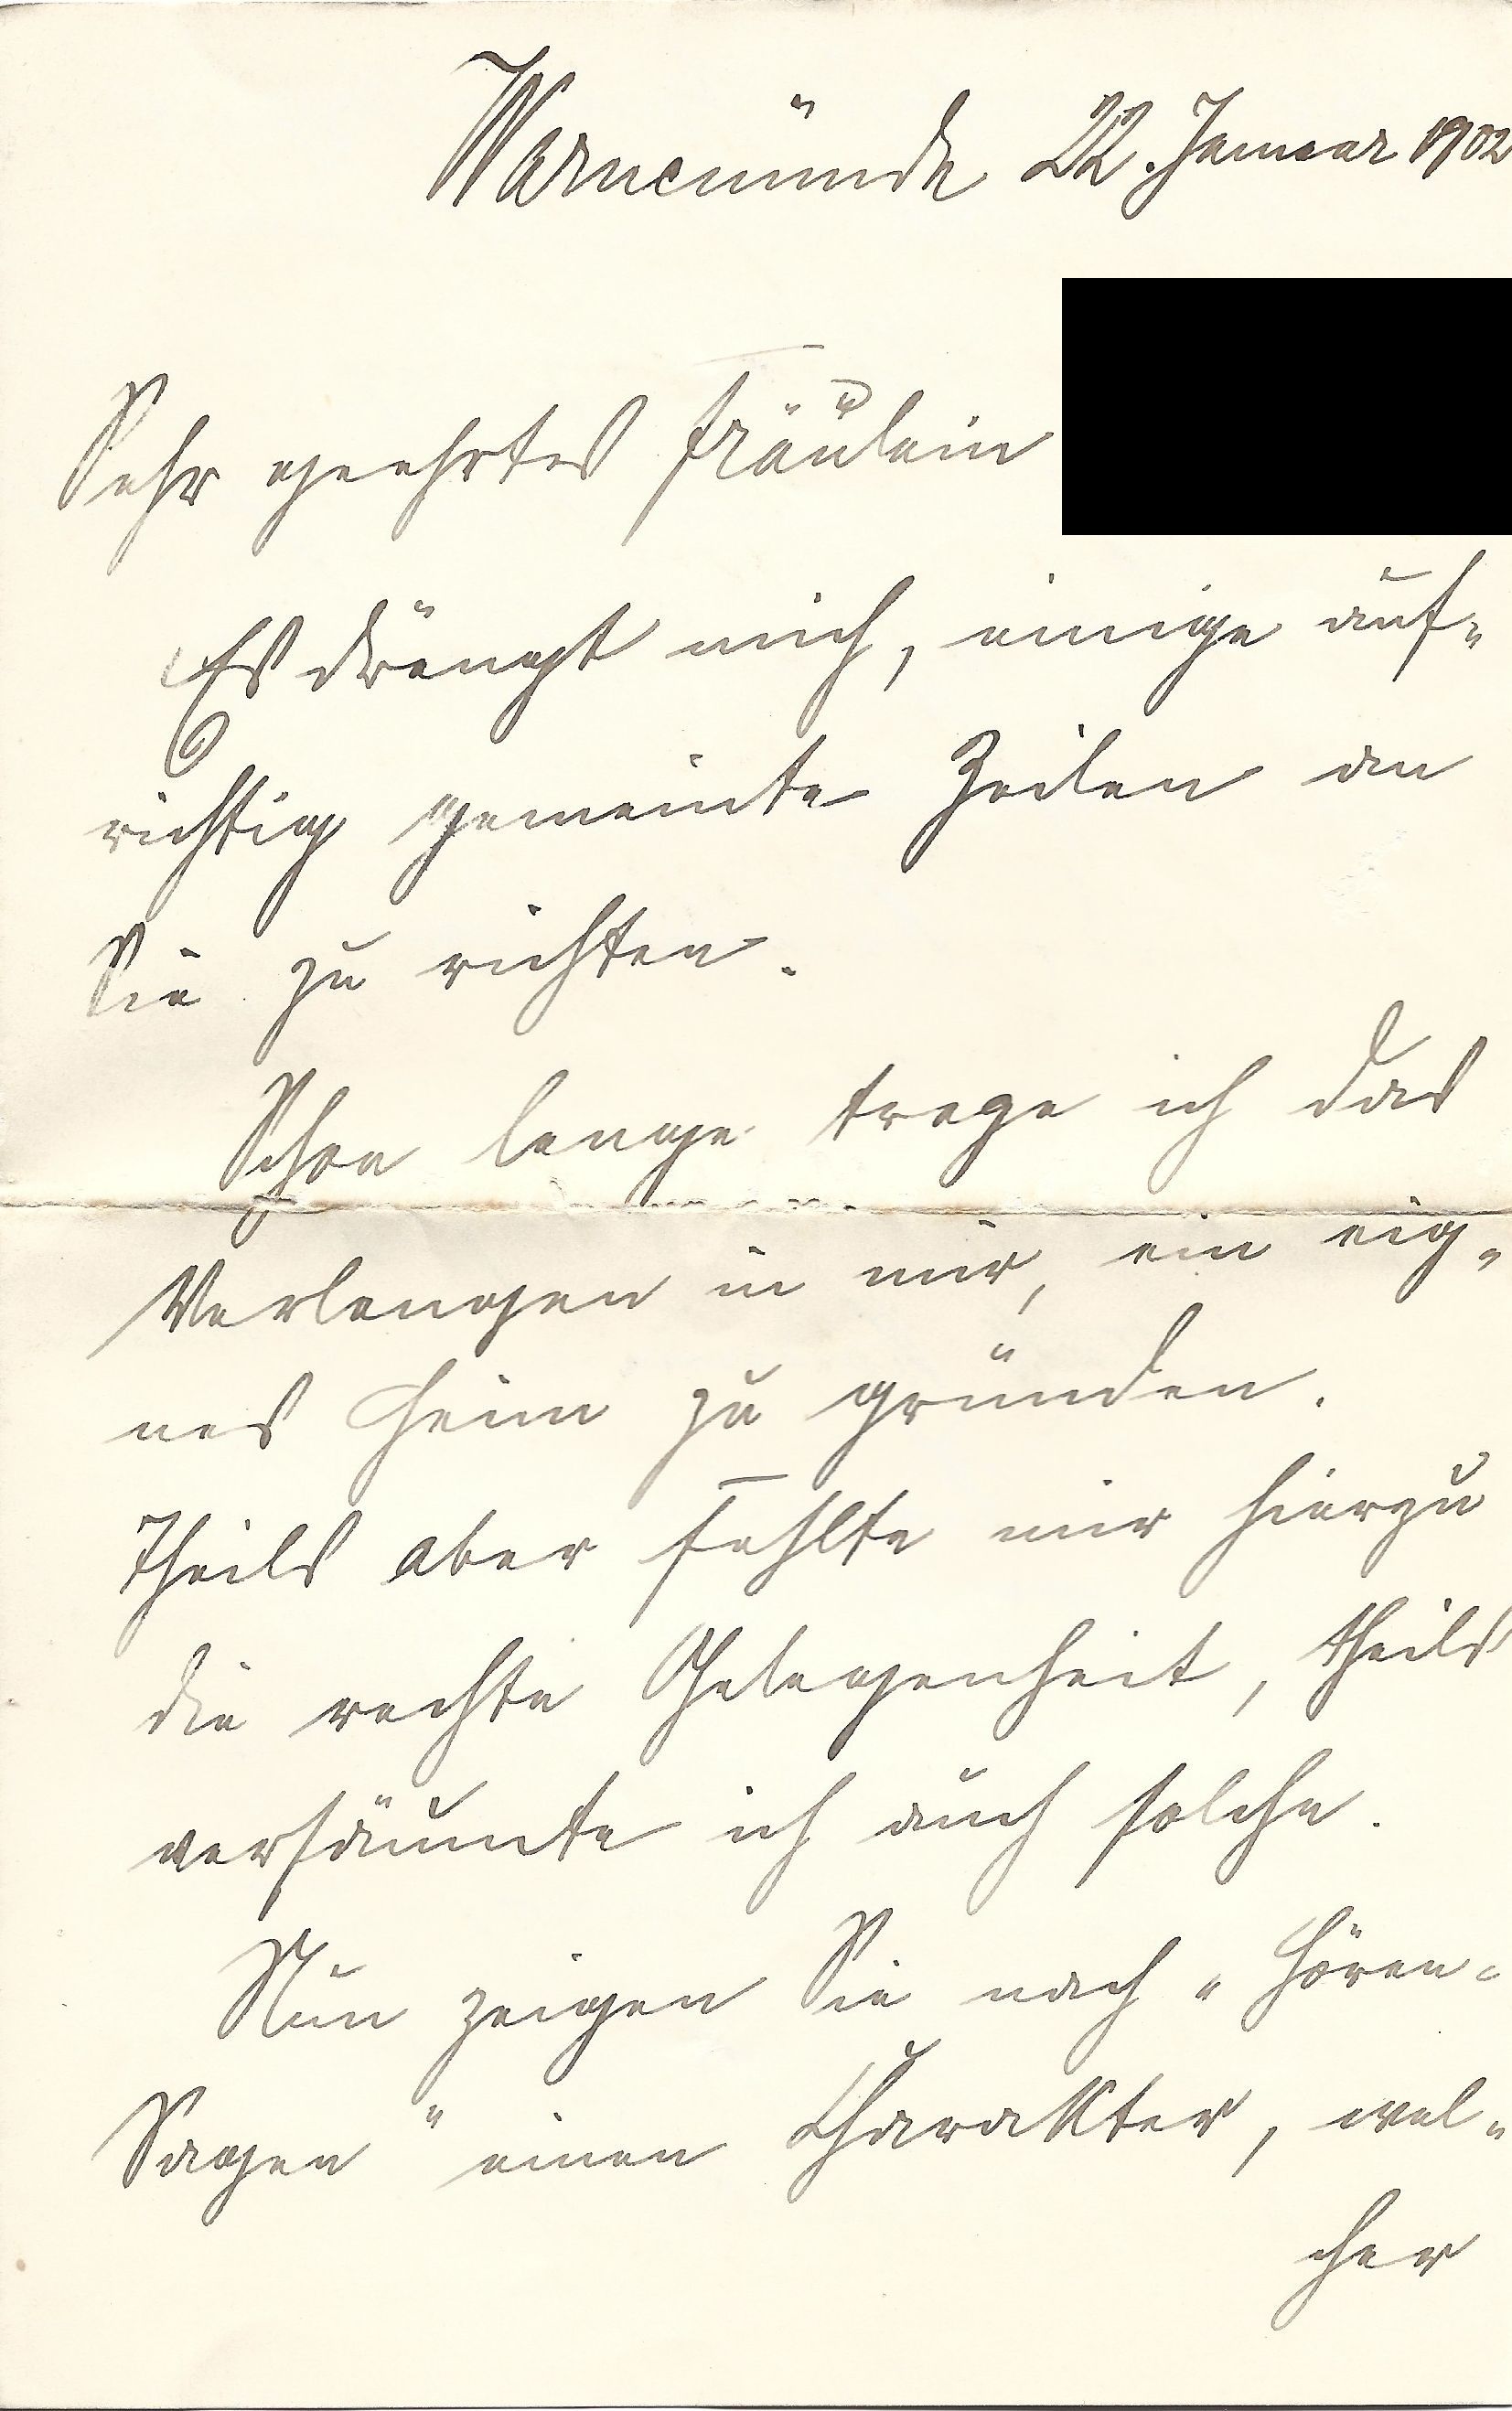 Warnemünde 22. Januar 1902
Sehr geehrtes Fräulein
Es drängt mich, einige auf-
richtig gemeinte Zeilen an
Sie zu richten.
Schon lange trage ich das
Verlangen in mir, ein eig-
nes Heim zu gründen.
Theils aber fehlte mir hierzu
die rechte Gelegenheit, theils
versäumte ich auch solche.
Nun zeigen Sie nach „Hören-
Sagen" einen Charakter, wel-
cher